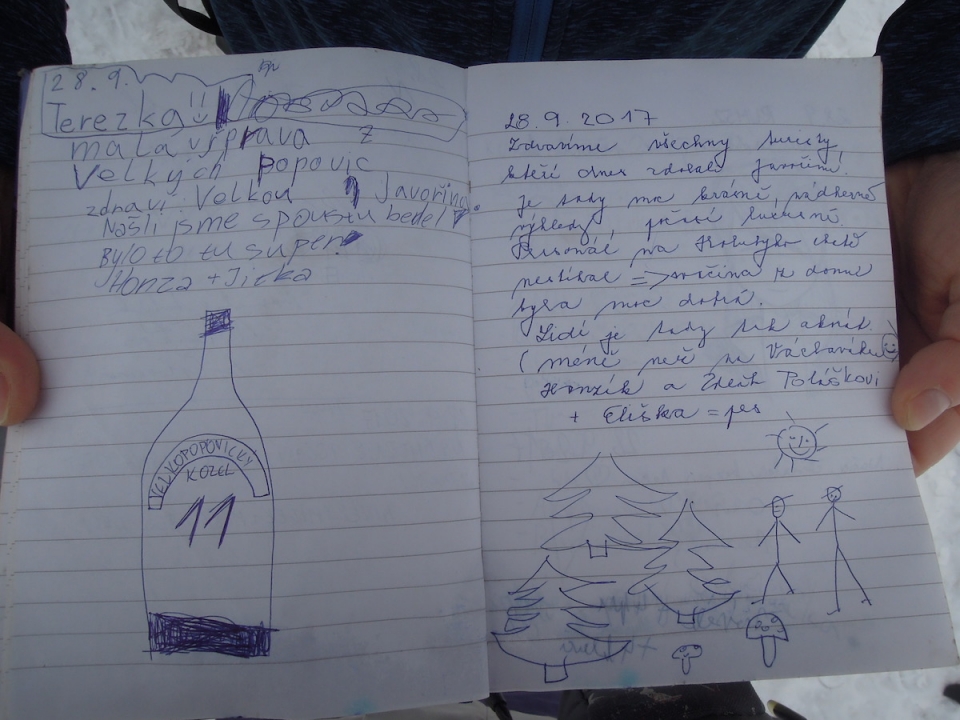 28.9.
Terezka
malá výprava z
Velkých Popovic
zdraví Velkou Javořinu.
Našli jsme spoustu bedel
Bylo to tu super
Honza + Jirka
VELKOPOPOVICKÝ
KOZEL
11
28.9.2017
Zdravíme všechny turisty,
kteří dnes zdolali Javořinu!
Je tady moc krásně, nádherné
výhledy, počasí
na
nestíhal => svíčina z domu
byla moc dobrá.
Lidí je tady tak akorát
(méně než na Václaváku
Honzík a Zdeněk Poláškovi
+ Eliška = pes